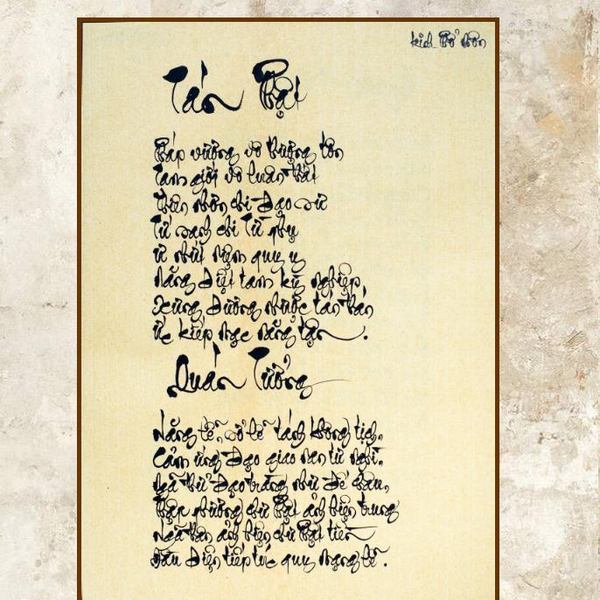 kinh Phổ Môn
Tán Phật
Pháp vương vô thượng tôn
Tam giới vô luân thất
Thiên nhơn chi Đạo sư
Tứ sanh chi Từ phụ
Ư nhứt niệm quy y
Năng diệt tam kỳ nghiệp
Xưng dương nhược tán thán
Ức kiếp mạc năng tận.
Quán Tưởng
Năng lễ, sở lễ tánh không tịch,
Cảm ứng đạo giao nan tư nghì.
Ngã thử đạo tràng như Đế châu,
Thập phương chư Phật ảnh hiện trung
Ngã thân ảnh hiện chư Phật tiền
Đầu diện tiếp túc quy mạng lễ.